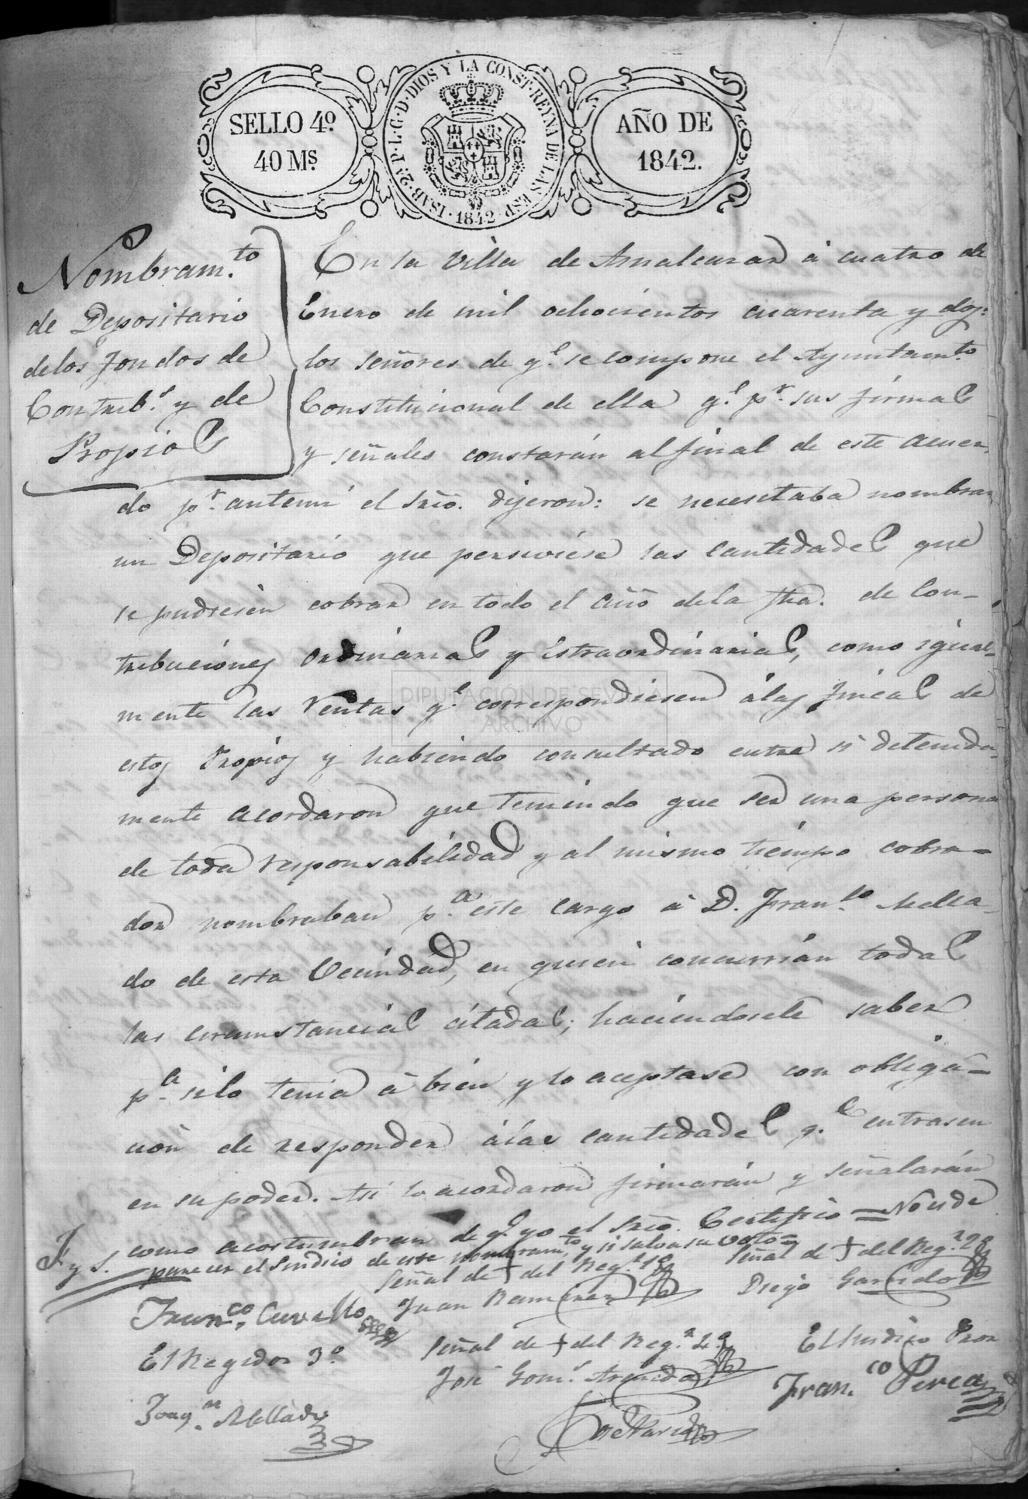 SELLO 4º
40 Ms.
ISAB. 2ª P. L. G. D. DIOS Y LA CONST. REYNA DE LAS ESP. 1842
AÑO DE
1842.
Nombram.to
de Depositario
de los fondos de
Contrib.s y de
Propios
En la Villa de Aznalcazar á cuatro de
Enero de mil ochocientos cuarenta y dos:
los señores de q.e se compone el Ayuntam.to
Constitucional de ella q.e p.r sus firmas
y señales constarán al final de este acuer-
do p.r antemi el Srio. dijeron: se necesitaba nombrar
un Depositario que perciviese las cantidades que
se pudiesen cobrar en todo el año de la fha. de Con-
tribuciones ordinarias y Estraordinarias, como igual-
mente las Rentas q.e correspondiesen á las fincas de
estos Propios y habiendo consultado entre si detenida-
mente acordaron que teniendo que ser una persona
de toda responsabilidad y al mismo tiempo cobra-
dor nombraban p.a este cargo á D. Fran.co Mella-
do de esta Vecindad, en quien concurrián todas
las circunstancias citadas; haciendosele saber
p.a si lo tenia á bien y lo aceptase con obliga-
ción de responder á las cantidades q.e entrasen
en su poder. Asi lo acordaron firmarán y señalarán
como acostumbran de q.e yo el Srio. Certifico = No es de
parecer el Sindico de este nombram.to y si salva su voto =
F. y S.
Señal de + del Reg.r 1º
Señal de + del Reg.r 2º
Fran.co Curello
Juan Ramirez
Diego Garrido
El Regidor 3º
Señal de + del Reg.r 4º
El Sindico Pror
Joaq.n Mellado
José Gom.z
Fran.co Perea
DIPUTACIÓN DE SEVILLA
ARCHIVO